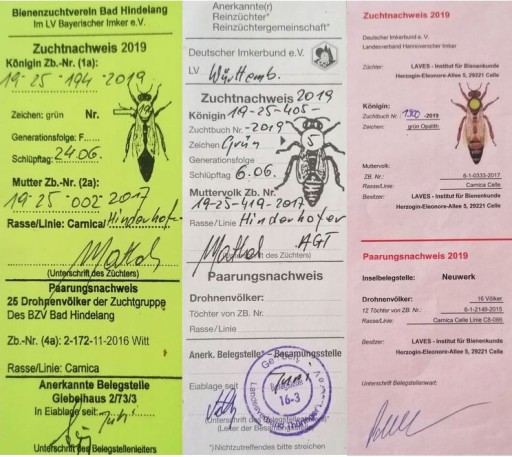 Bienenzuchtverein Bad Hindelang
Im LV Bayerischer Imker e.V.
Zuchtnachweis 2019
Königin Zb.-Nr. (1a):
19-25-194-2019
Zeichen: grün Nr.
Generationsfolge: F......
Schlüpftag: 24.06.
Mutter Zb.-Nr. (2a):
19-25-002-2017
Rasse/Linie: Carnica/Hinderhofer
(Unterschrift des Züchters)
Paarungsnachweis
25 Drohnenvölker der Zuchtgruppe
Des BZV Bad Hindelang
Zb.-Nr. (4a): 2-172-11-2016 Witt
Rasse/Linie: Carnica
Anerkannte Belegstelle
Giebelhaus 2/73/3
In Eiablage seit: Juli
Unterschrift des Belegstellenleiters
Anerkannte(r)
Reinzüchter*
Reinzüchtergemeinschaft*
Deutscher Imkerbund e.V.
LV Württemb.
Zuchtnachweis 2019
Königin 19-25-405-
Zuchtbuch Nr. -2019
Zeichen Grün 5
Generationsfolge
Schlüpftag 6.06.
Muttervolk Zb.Nr.
19-25-419-2017
Rasse/Linie Hinderhofer
AGT
(Unterschrift des Züchters)
Paarungsnachweis
Drohnenvölker:
Töchter von ZB. Nr.
Rasse/Linie
Anerk. Belegstelle*-Besamungsstelle
Eiablage seit Juni
16-3
(Unterschrift des Belegstellenleiters)
(Leiter der Besamungsstelle)
*)Nichtzutreffendes bitte streichen
Zuchtnachweis 2019
Deutscher Imkerbund e.V.
Landesverband Hannoverscher Imker
Züchter: LAVES - Institut für Bienenkunde
Herzogin-Eleonore-Allee 5, 29221 Celle
Königin:
Zuchtbuch Nr. -2019
Zeichen: grün Opalith
Muttervolk:
ZB. Nr.: 6-1-0333-2017
Rasse/Linie: Carnica Celle
Besitzer: LAVES - Institut für Bienenkunde
Herzogin-Eleonore-Allee 5, 29221 Celle
Paarungsnachweis 2019
Inselbelegstelle: Neuwerk
Drohnenvölker: 16 Völker
12 Töchter von ZB. Nr.: 6-1-2149-2015
Rasse/Linie: Carnica Celle Linie C8-086
Besitzer: LAVES - Institut für Bienenkunde
Herzogin-Eleonore-Allee 5, 29221 Celle
Unterschrift Belegstellenwart: